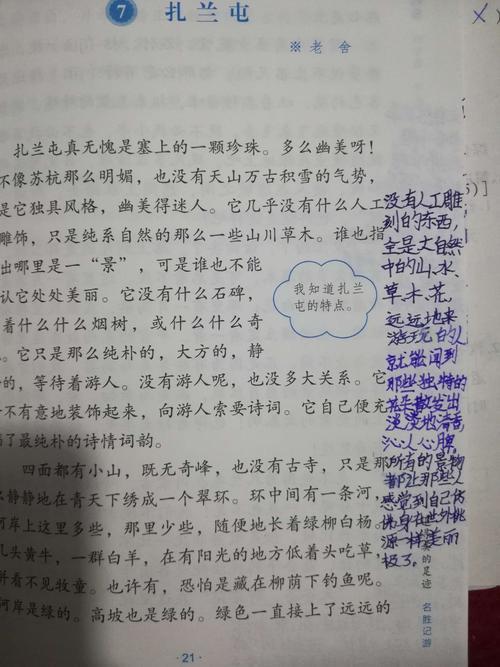 7 扎兰屯
※ 老 舍
扎兰屯真无愧是塞上的一颗珍珠。多么幽美呀！
不像苏杭那么明媚，也没有天山万古积雪的气势，
是它独具风格，幽美得迷人。它几乎没有什么人工
雕饰，只是纯系自然的那么一些山川草木。谁也指
出哪里是一“景”，可是谁也不能
认它处处美丽。它没有什么石碑，
着什么什么烟树，或什么什么奇
。它只是那么纯朴的，大方的，静
的，等待着游人。没有游人呢，也没多大关系。它
不有意地装饰起来，向游人索要诗词。它自己便充
满了最纯朴的诗情词韵。
我知道扎兰
屯的特点。
四面都有小山，既无奇峰，也没有古寺，只是那
么静静地在青天下绣成一个翠环。环中间有一条河，
河岸上这里多些，那里少些，随便地长着绿柳白杨。
几头黄牛，一群白羊，在有阳光的地方低着头吃草，
并看不见牧童。也许有，恐怕是藏在柳荫下钓鱼呢。
河岸是绿的。高坡也是绿的。绿色一直接上了远远的
没有人工雕
刻的东西，
全是大自然
中的山、水、
草木、花，
远远地来
游玩的人
就能闻到
那些独特的
花朵散发出
淡淡地清香
沁人心脾，
所有的景物
都让那些人
感觉到自己仿
佛身在世外桃
源一样美丽
极了。
的足迹
名胜记游
·21·